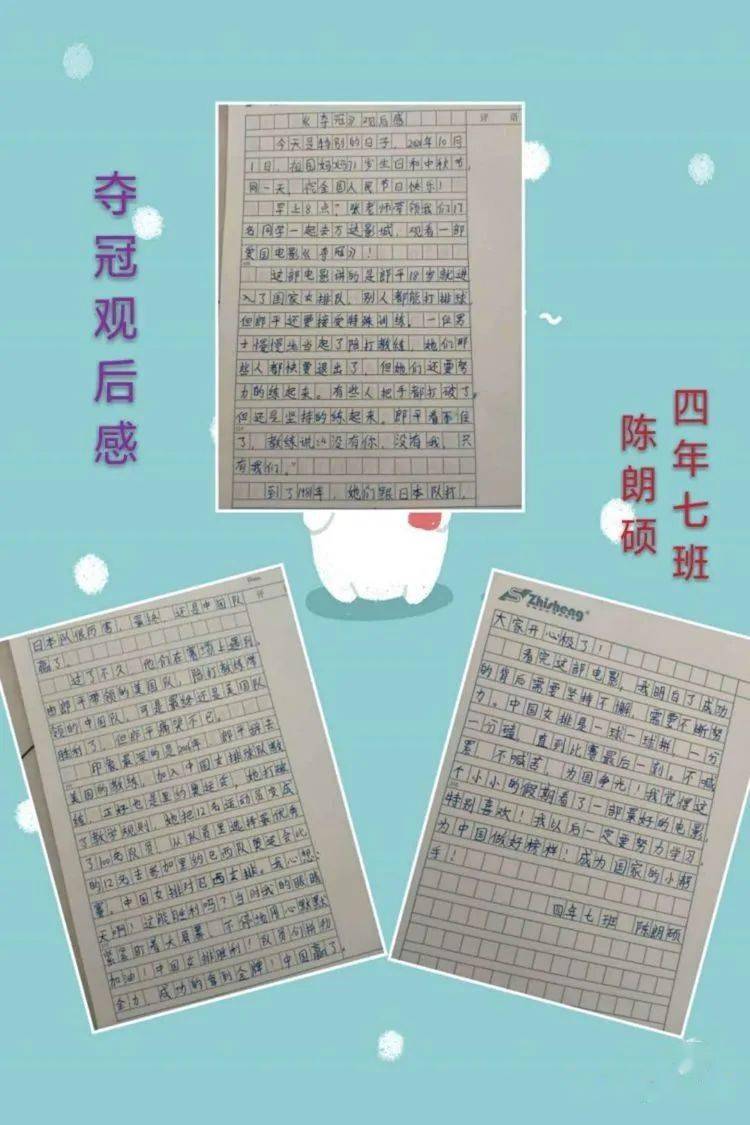 夺冠观后感
四年七班
陈朗硕
评 语
《夺冠》观后感
今天是特别的日子,2020年10月
1日,祖国妈妈71岁生日和中秋节
同一天,祝全国人民节日快乐!
早上8点,张老师带领我们17
名同学一起去万达影城,观看一部
爱国电影《夺冠》!
这部电影讲的是郎平18岁就进
入了国家女排队,别人都能打排球
但郎平还要接受特殊训练。一位男
士慢慢地当起了陪打教练,她们那
些人都快要退出了,但她们还要努
力的练起来。有些人把手都打破了,
但还是坚持的练起来。郎平看不住
了,教练说:"没有你,没有我,只
有我们。"
到了1981年,她们跟日本队打,
Date
评
日本队很厉害,最终,还是中国队
赢了。
过了不久,他们在赛场上遇到
由郎平带领的美国队,陪打教练带
领的中国队,可是最终还是美国队
胜利了,但郎平痛哭不已。
印象最深的是2016年,郎平辞去
美国的教练,加入中国女排球队教
练,正好也是里约奥运会,她打破
了教学规则,她把12名运动员变成
了100名队员,从队员里选择最优秀
的12名去参加里约巴西队奥运会比
赛。中国女排对巴西女排。我心想:
天啊!这能胜利吗?当时我的眼睛
紧紧盯着大屏幕,不停地用心默默
加油!中国女排胜利!队员们拼劲
全力,成功的拿到金牌!中国赢了。
Zhisheng®
大家开心极了!
看完这部电影,我明白了成功
的背后需要坚持不懈,需要不断努
力。中国女排是一球一球拼,一分
一分磕,直到比赛最后一刻。不喊
累,不喊苦,为国争光!我觉得这
个小小的假期看了一部最好的电影,
特别喜欢!我以后一定要努力学习,
为中国做好榜样!成为国家的小帮
手!
四年七班 陈朗硕